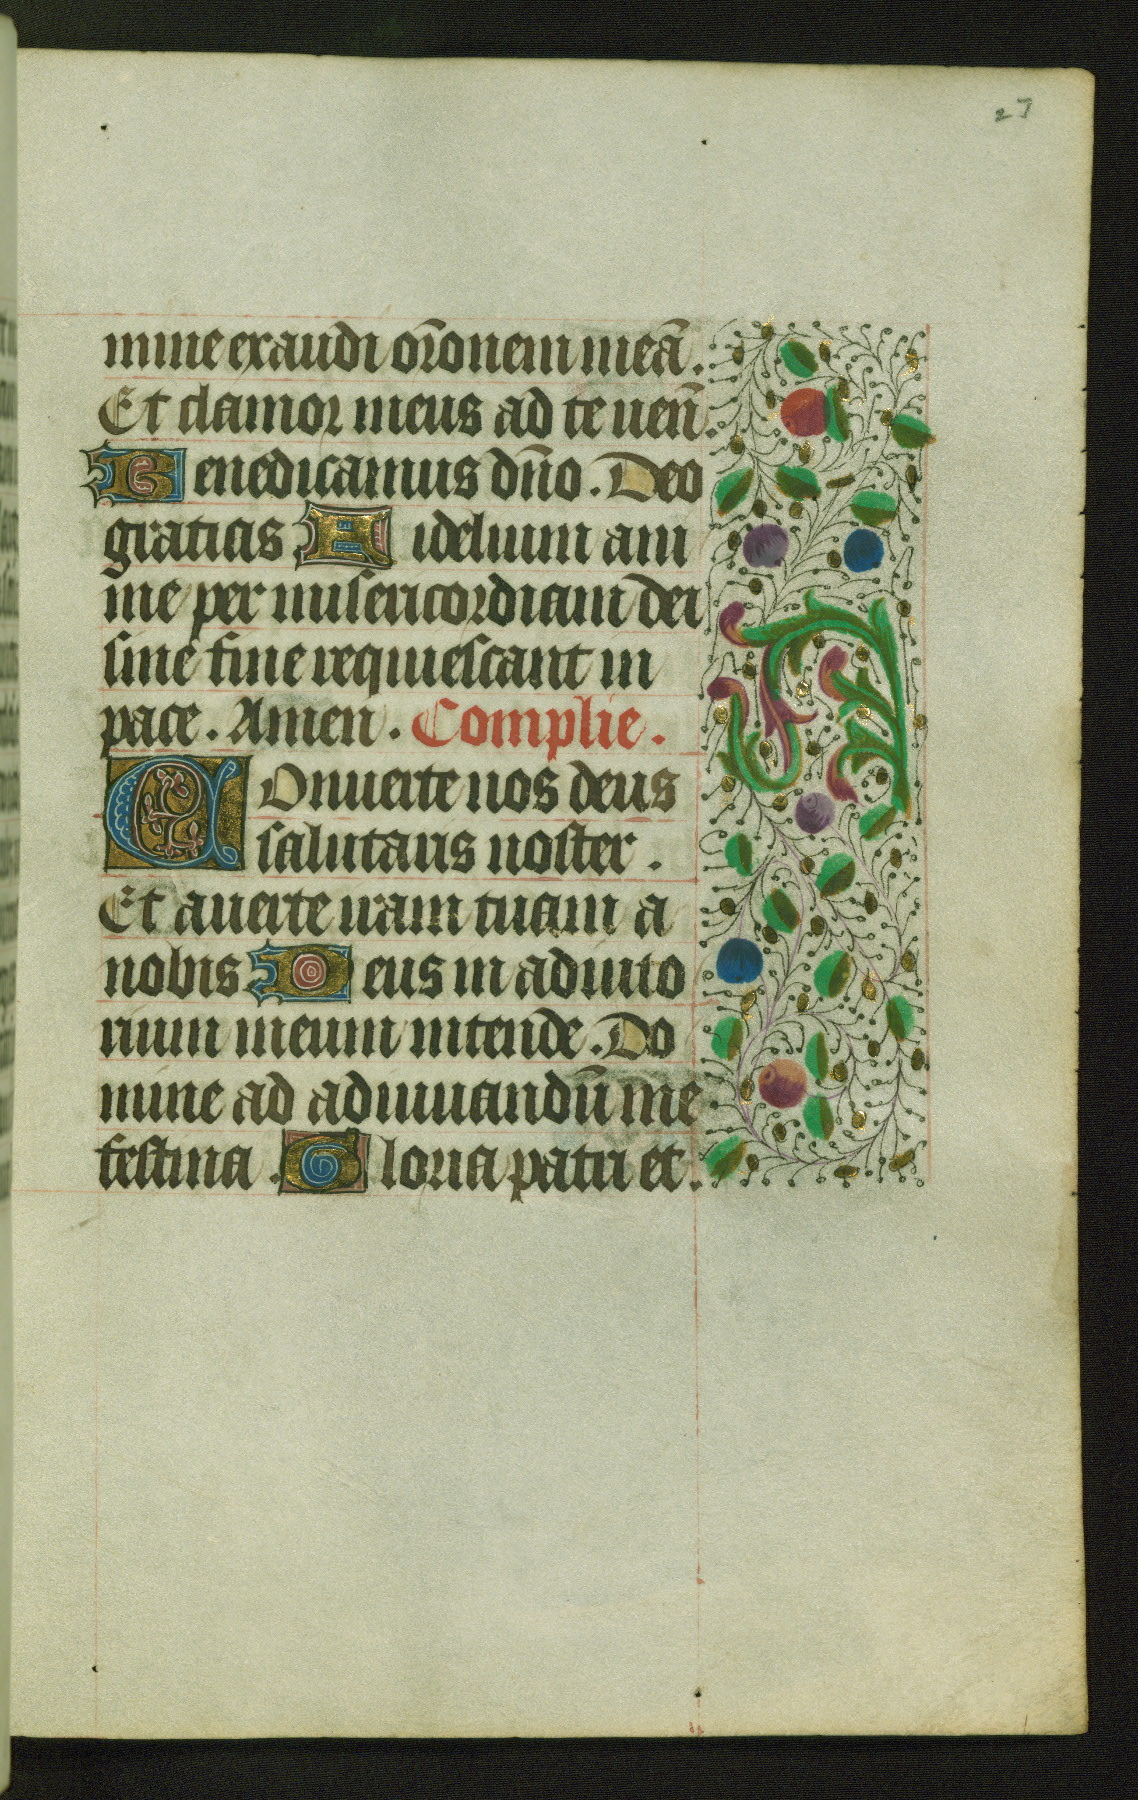 27
mine exaudi or̄onem meā.
Et clamor meus ad te ueñ.
Benedicamus dño. Deo
gratias Fidelium am
me per misericordiam dei
sine fine requiescant in
pace. Amen. Complie.
Conuerte nos deus
salutaris noster.
Et auerte iram tuam a
nobis Deus in adiuto
rium meum intende. Do
mine ad adiuuandū me
festina. Gloria patri et.